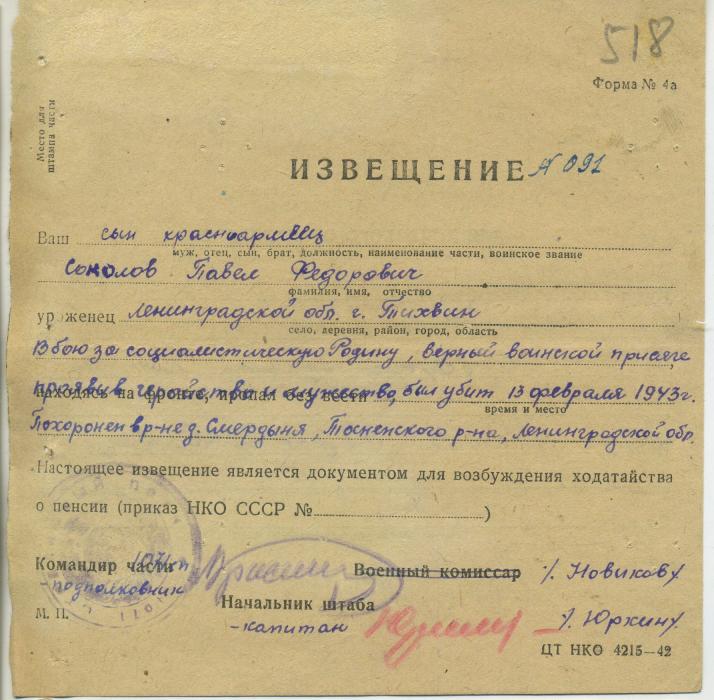 518
Форма № 4а
Место для
штампа части
ИЗВЕЩЕНИЕ № 091
Ваш сын красноармеец
муж, отец, сын, брат, должность, наименование части, воинское звание
Соколов Павел Федорович
фамилия, имя, отчество
уроженец Ленинградской обл. г. Тихвин
село, деревня, район, город, область
В бою за социалистическую Родину, верный воинской присяге
находясь на фронте, пропал без вести
проявив геройство и мужество, был убит 13 февраля 1943 г.
время и место
Похоронен в р-не д. Смердыня, Тосненского р-на, Ленинградской обл.
Настоящее извещение является документом для возбуждения ходатайства
о пенсии (приказ НКО СССР № )
Командир части 1071 сп Военный комиссар /Новиков/
-подполковник
Начальник штаба
М. П. -капитан — /Юркин/
ЦТ НКО 4215—42